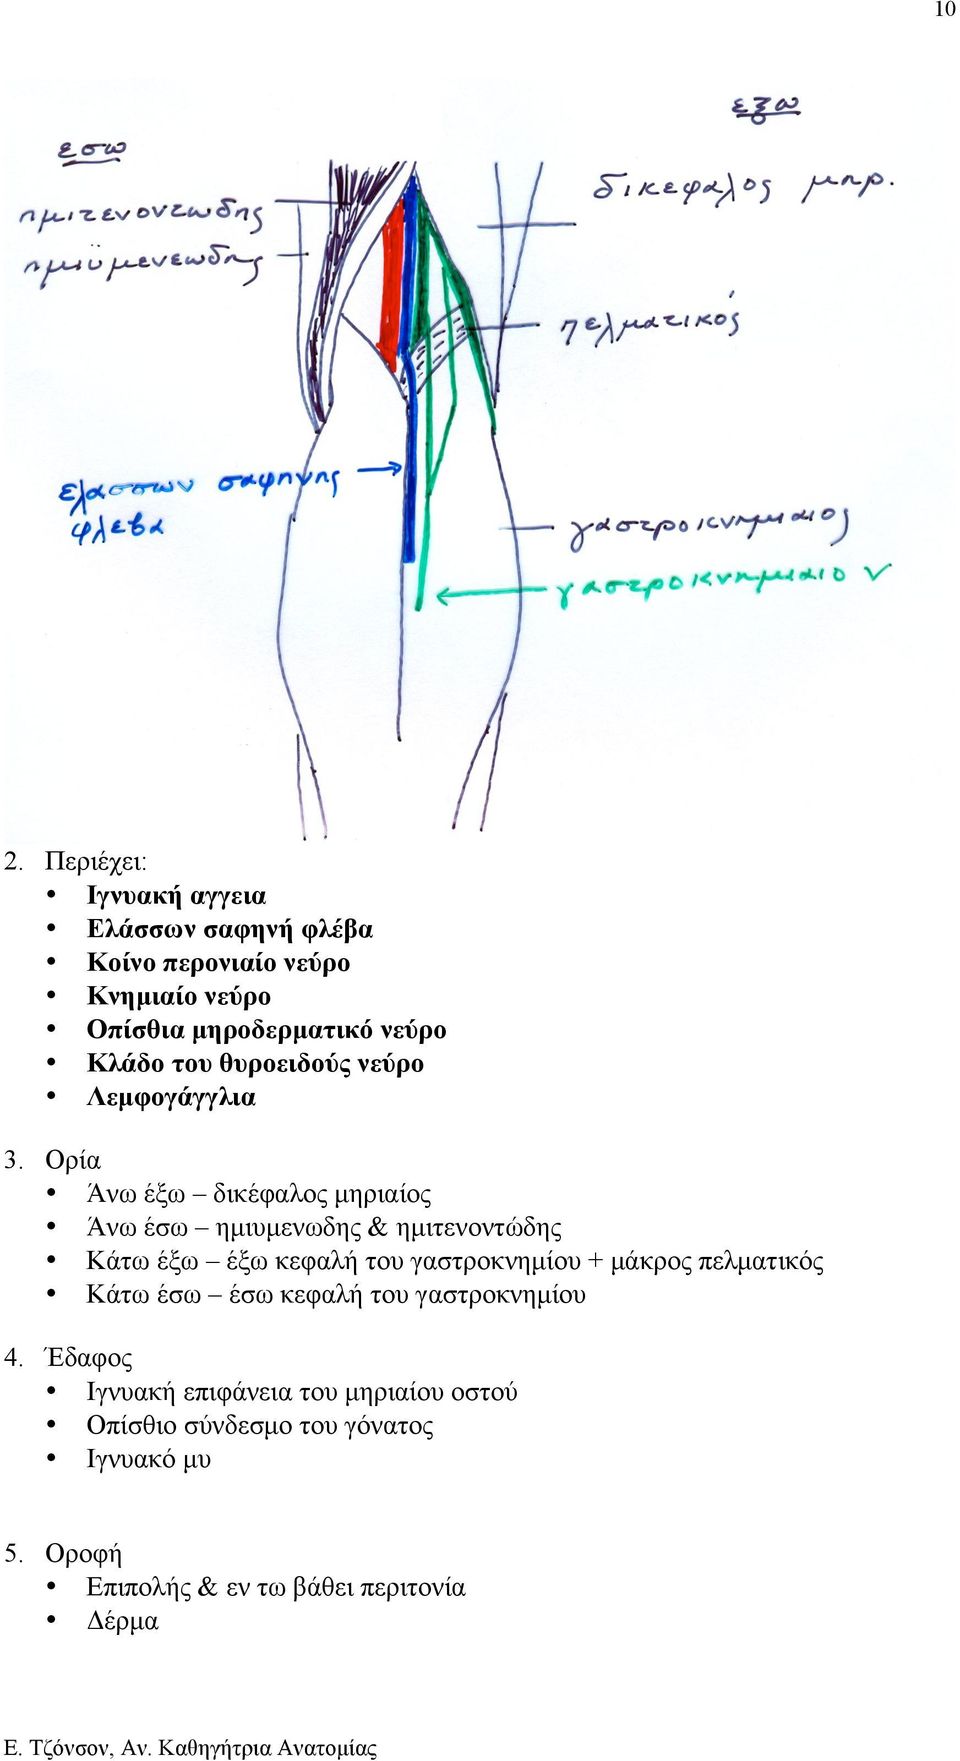 10
εξω
εσω
δικεφαλος μηρ.
ημιτενοντωδης
ημιϋμενεωδης
πελματικός
ελασσων σαφηνης
φλεβα
γαστροκνημιαιος
γαστροκνημιαιο ν
2. Περιέχει:
• Ιγνυακή αγγεια
• Ελάσσων σαφηνή φλέβα
• Κοίνο περονιαίο νεύρο
• Κνημιαίο νεύρο
• Οπίσθια μηροδερματικό νεύρο
• Κλάδο του θυροειδούς νεύρο
• Λεμφογάγγλια
3. Ορία
• Άνω έξω – δικέφαλος μηριαίος
• Άνω έσω – ημιυμενωδης & ημιτενοντώδης
• Κάτω έξω – έξω κεφαλή του γαστροκνημίου + μάκρος πελματικός
• Κάτω έσω – έσω κεφαλή του γαστροκνημίου
4. Έδαφος
• Ιγνυακή επιφάνεια του μηριαίου οστού
• Οπίσθιο σύνδεσμο του γόνατος
• Ιγνυακό μυ
5. Οροφή
• Επιπολής & εν τω βάθει περιτονία
• Δέρμα
Ε. Τζόνσον, Αν. Καθηγήτρια Ανατομίας